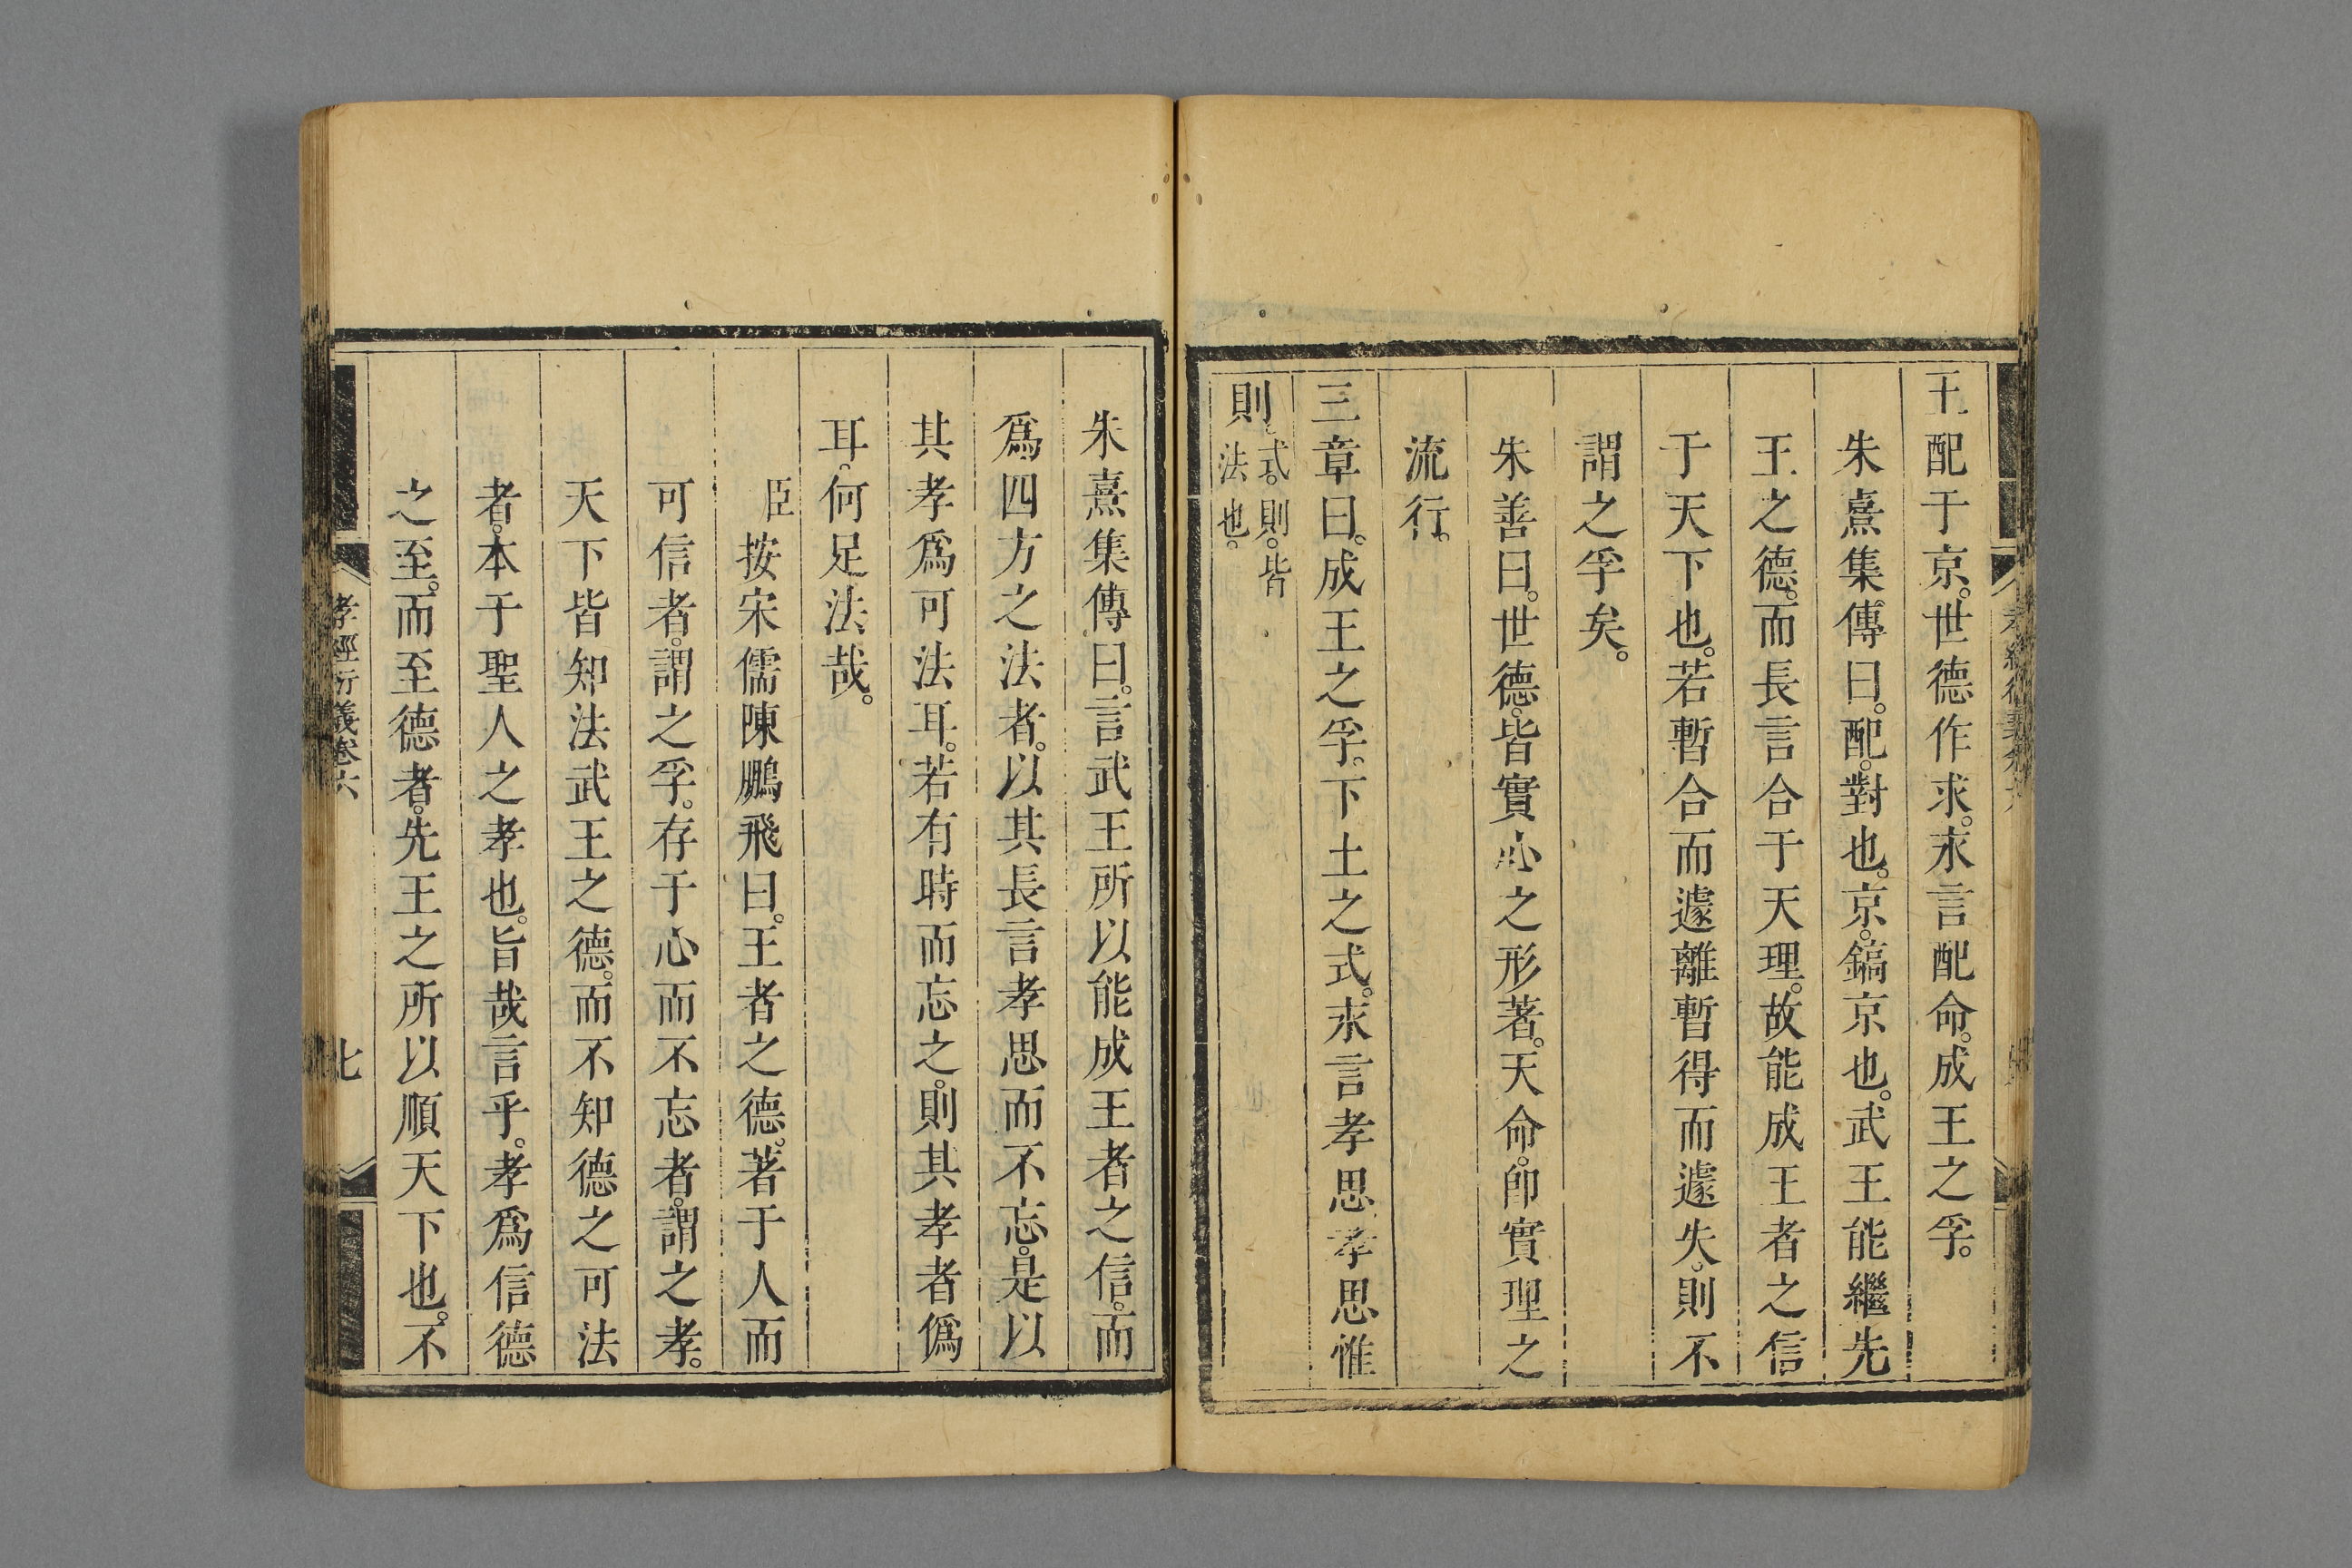 王配于京。世德作求。永言配命。成王之孚。
朱熹集傳曰。配。對也。京。鎬京也。武王能繼先
王之德。而長言合于天理。故能成王者之信
于天下也。若暫合而遽離暫得而遽失。則不
謂之孚矣。
朱善曰。世德。皆實心之形著。天命。卽實理之
流行。
三章曰。成王之孚。下土之式。永言孝思孝思惟
則式。則。皆法也。
朱熹集傳曰。言武王所以能成王者之信。而
爲四方之法者。以其長言孝思而不忘。是以
其孝爲可法耳。若有時而忘之。則其孝者僞
耳。何足法哉。
臣按宋儒陳鵬飛曰。王者之德。著于人而
可信者。謂之孚。存于心而不忘者。謂之孝。
天下皆知法武王之德。而不知德之可法
者。本于聖人之孝也。旨哉言乎。孝爲信德
之至。而至德者。先王之所以順天下也。不
孝經衍義卷六
七